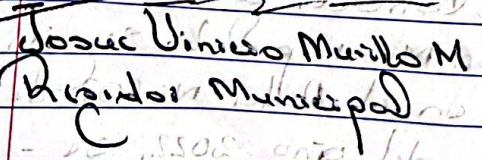 Josue Vinicio Murillo M
Regidor Municipal